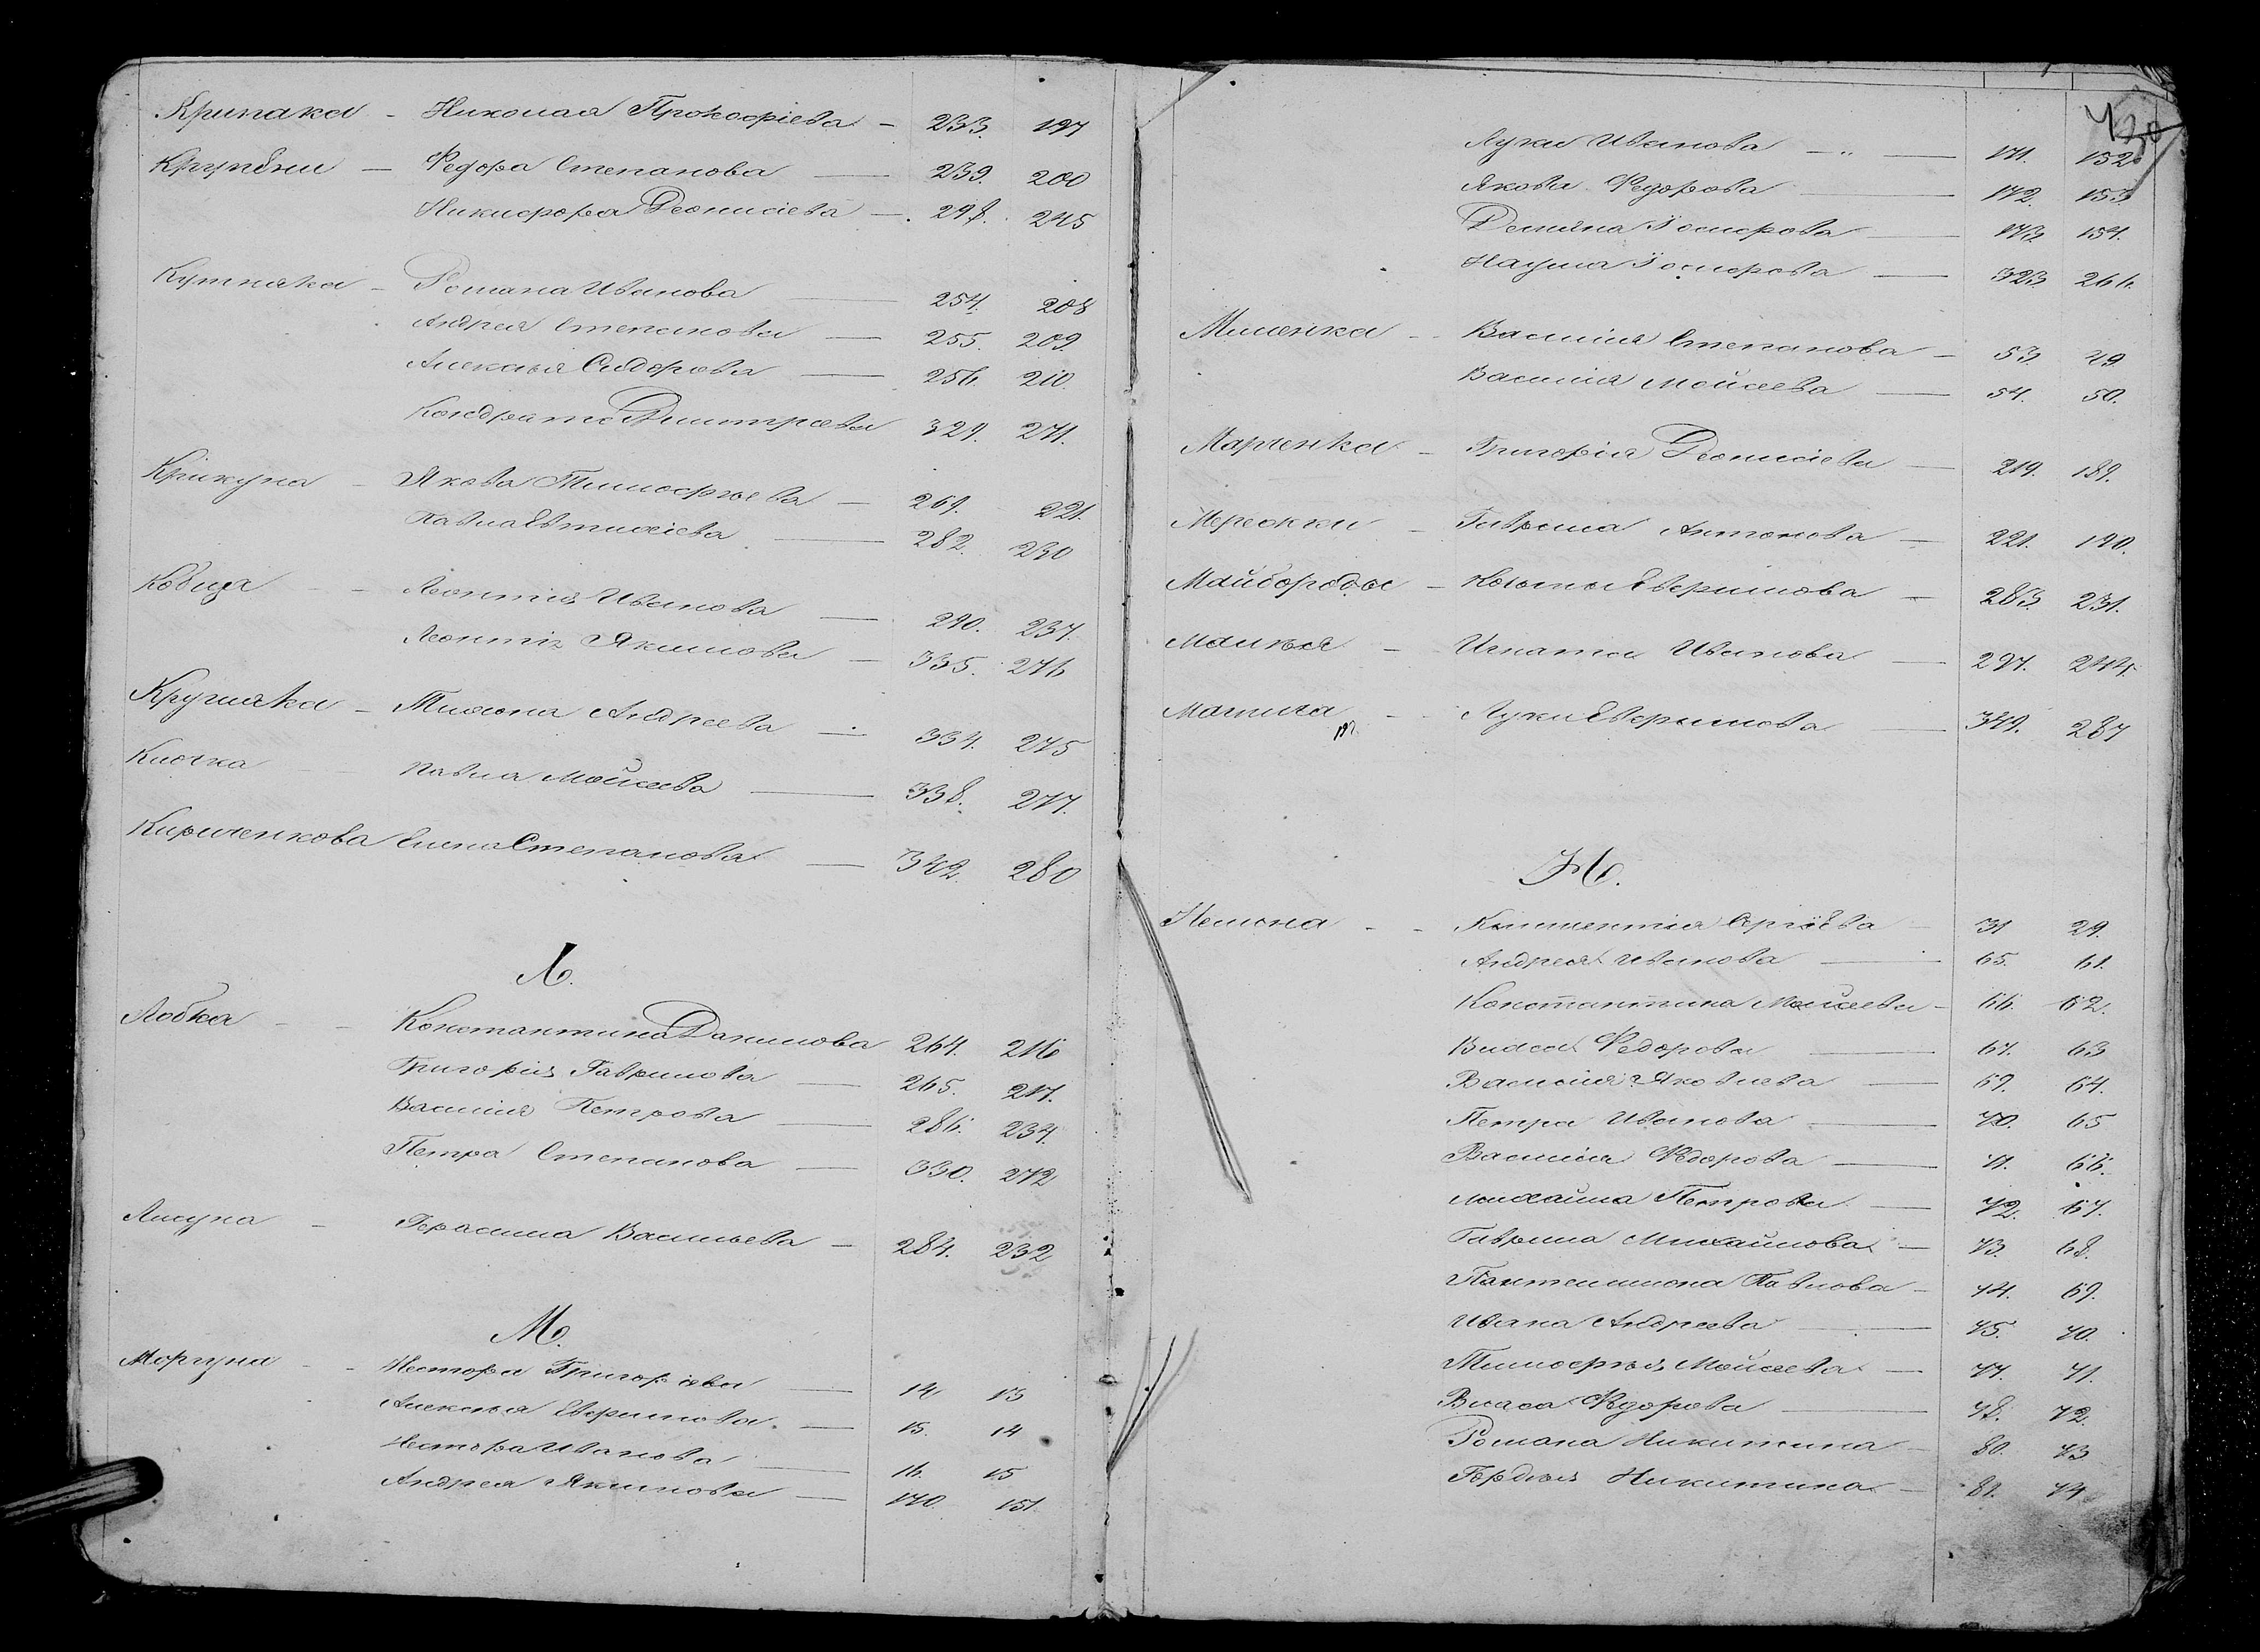 Крипака - Николая Прокофіева - 233. 197
Крупски - Федора Степанова - 239. 200
Никифора Деонисіева - 298. 245
Кутняка - Романа Иванова - 254. 208
Андрея Степанова - 255. 209.
Алексѣя Сидорова - 256 210.
Кондрата Дмитріева 329. 271.
Крикуна - Якова Тимофѣева - 269. 221.
Павла Евтихіева - 282. 230
Кобца - Леонтія Иванова - 290. 237.
Леонтія Якимова - 335. 276
Кругляка - Тихона Андреева - 334. 275
Клочка - Павла Мойсеева - 338. 277.
Кириченкова Елена Степанова - 342. 280
Л.
Лобка - Константина Данилова 264. 216
Григорія Гаврилова - 265. 217.
Василія Петрова - 286. 234.
Петра Степанова - 330. 272
Лисуна - Герасима Васильева - 284. 232
М.
Моргуна - Нестора Григоріева - 14 13
Алексѣя Евфимова - 15. 14
Нестора Иванова - 16. 15
Андрея Якимова - 170. 151.
Луки Иванова - 171. 152
Якова Федорова - 172. 153
Деміяна Іосифова - 173. 154.
Наума Іосифова - 323. 266.
Миленка - Василія Степанова - 53. 49
Василія Мойсеева - 54. 50.
Марченка - Григорія Деонисіева - 219. 189.
Мережки - Гаврила Антонова - 221. 190.
Майбороды - Козьмы Евфимова - 283. 231.
Манька - Игната Иванова - 297. 244.
Магнита - Луки Евфимова - 349. 287
Н.
Немона - Климентія Сергіева - 31 29.
Андрея Иванова - 65. 61.
Константина Мойсеева - 66. 62.
Власа Федорова - 67. 63
Василія Яковлева - 69. 64.
Петра Иванова - 70. 65
Василія Федорова - 71. 66.
Михайла Петрова - 72. 67.
Гаврила Михайлова - 73. 68.
Пантелимона Павлова - 74. 69.
Ивана Андреева - 75. 70.
Тимофѣя Мойсеева - 77. 71.
Власа Федорова - 78. 72.
Романа Никитина - 80. 73
Гордѣя Никитина - 81. 74